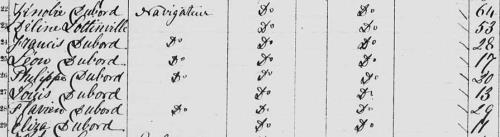 22 Zénobie Dubord Navigateur Do Do 64
23 Céline Lottinville Do Do 53
24 Francis Dubord Do Do Do 28
25 Léon Dubord Do Do Do 17
26 Philippe Dubord Do Do Do 20
27 Louis Dubord Do Do 13
28 Flavien Dubord Do Do Do 29
29 Eliza Dubord Do Do